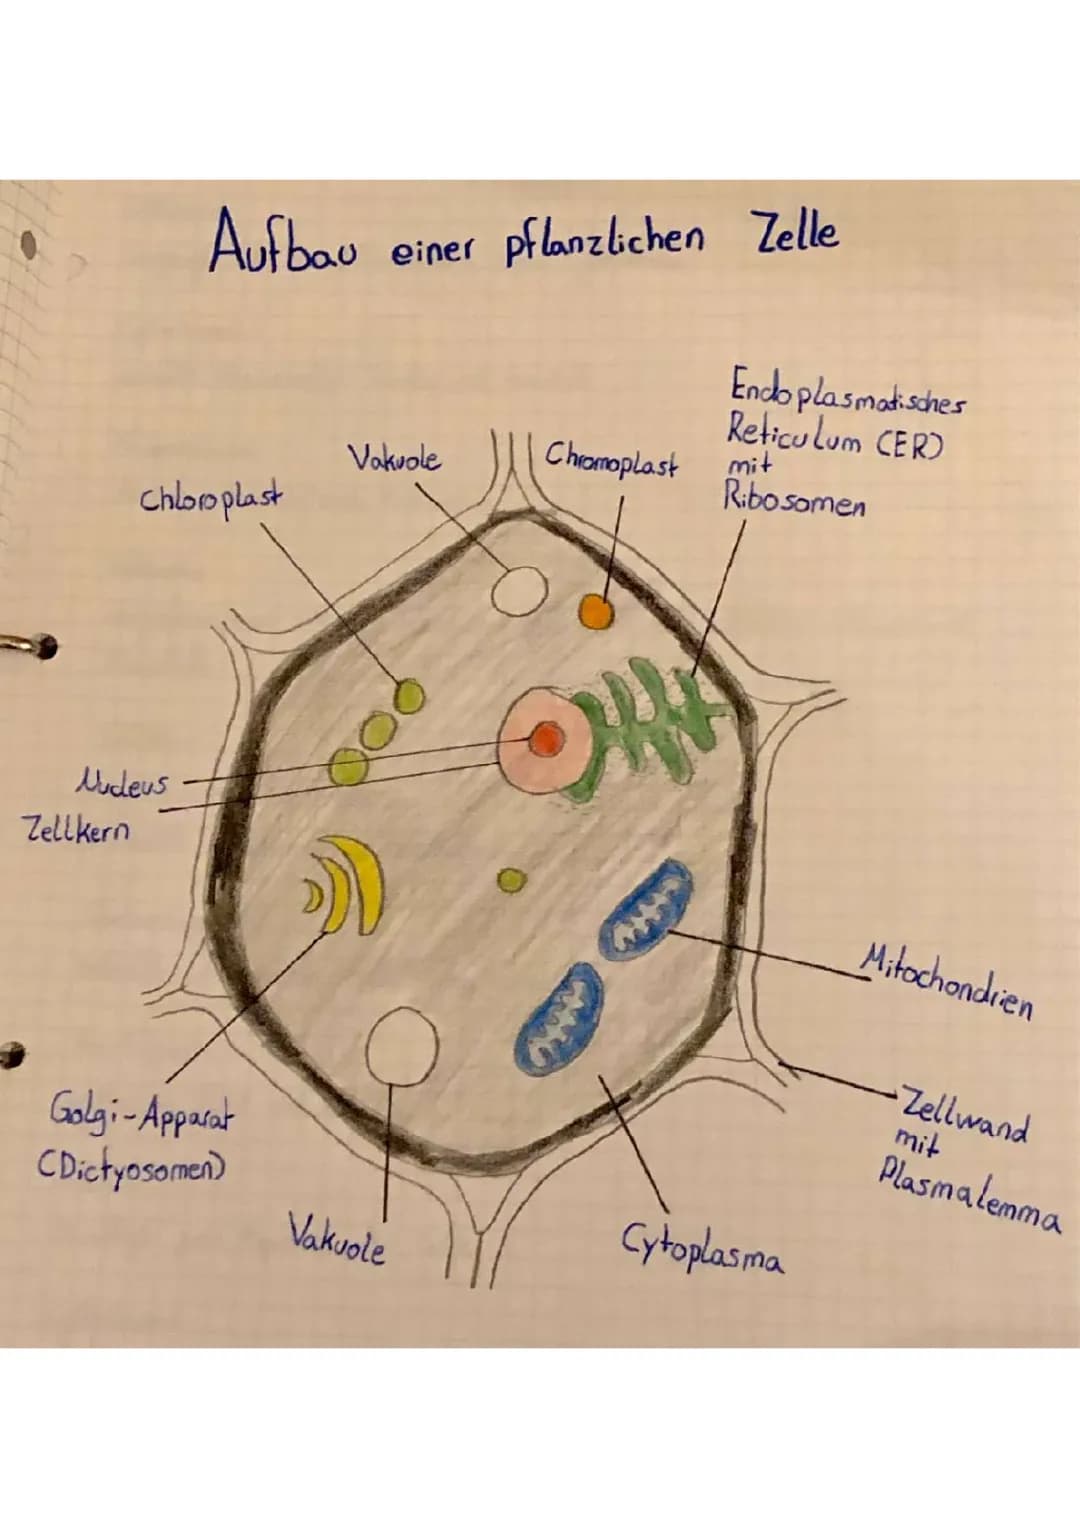 Aufbau einer pflanzlichen Zelle
Endoplasmatisches
Reticulum (ER)
mit
Ribosomen
Vakuole
Chromoplast
Chloroplast
Nucleus
Zellkern
Mitochondrien
Golgi-Apparat
(Dictyosomen)
Zellwand
mit
Plasmalemma
Vakuole
Cytoplasma